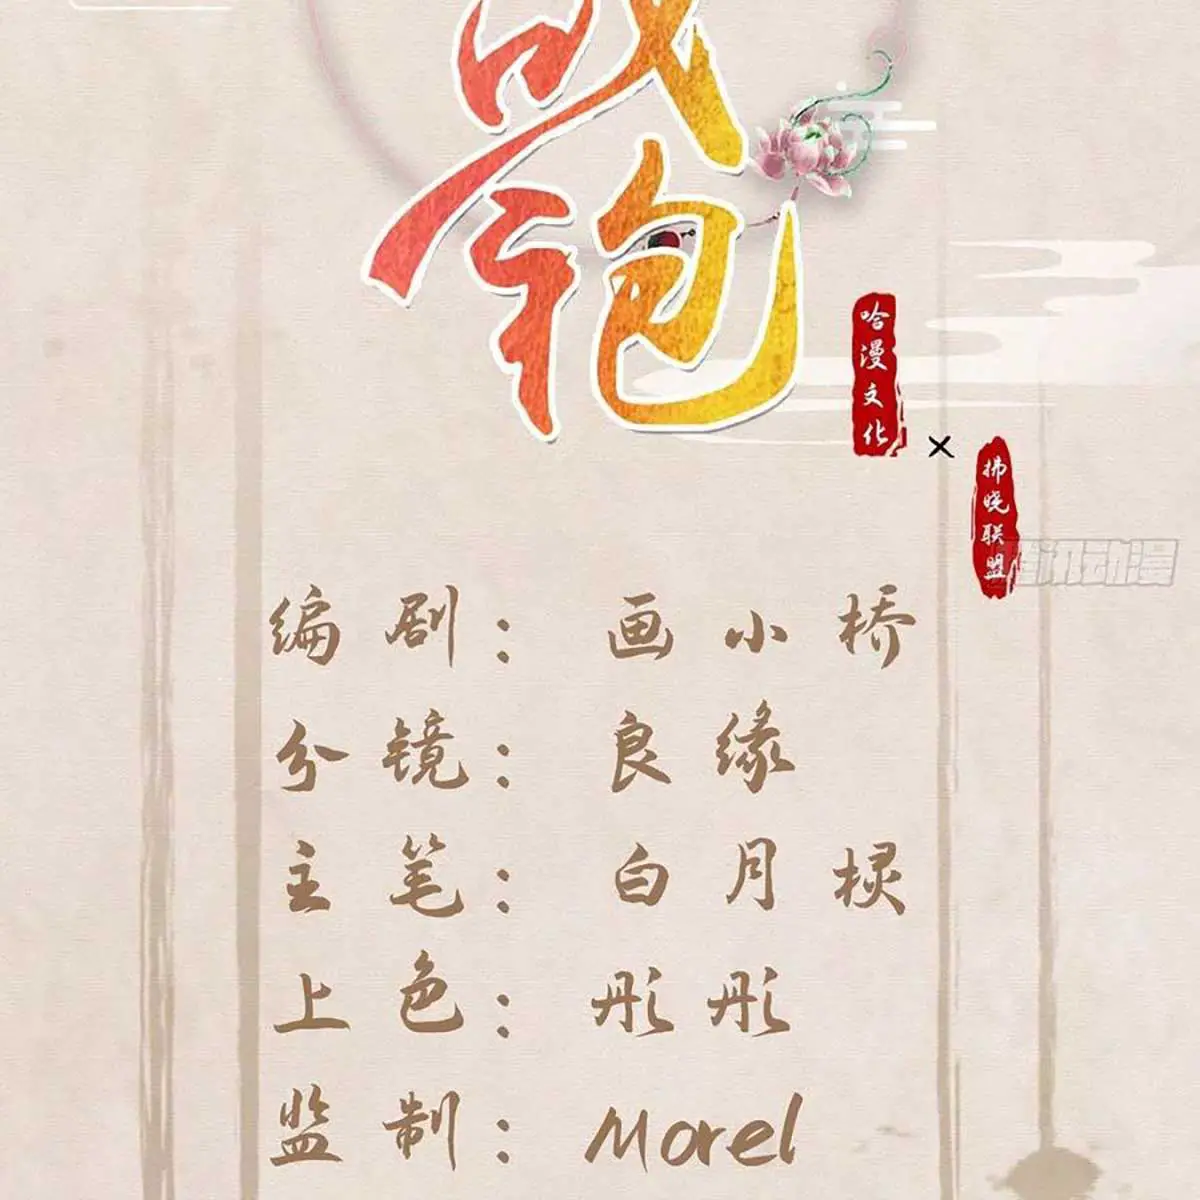 哈漫文化
×
拂晓联盟
编剧：画小桥
分镜：良缘
主笔：白月棂
上色：彤彤
监制：Morel